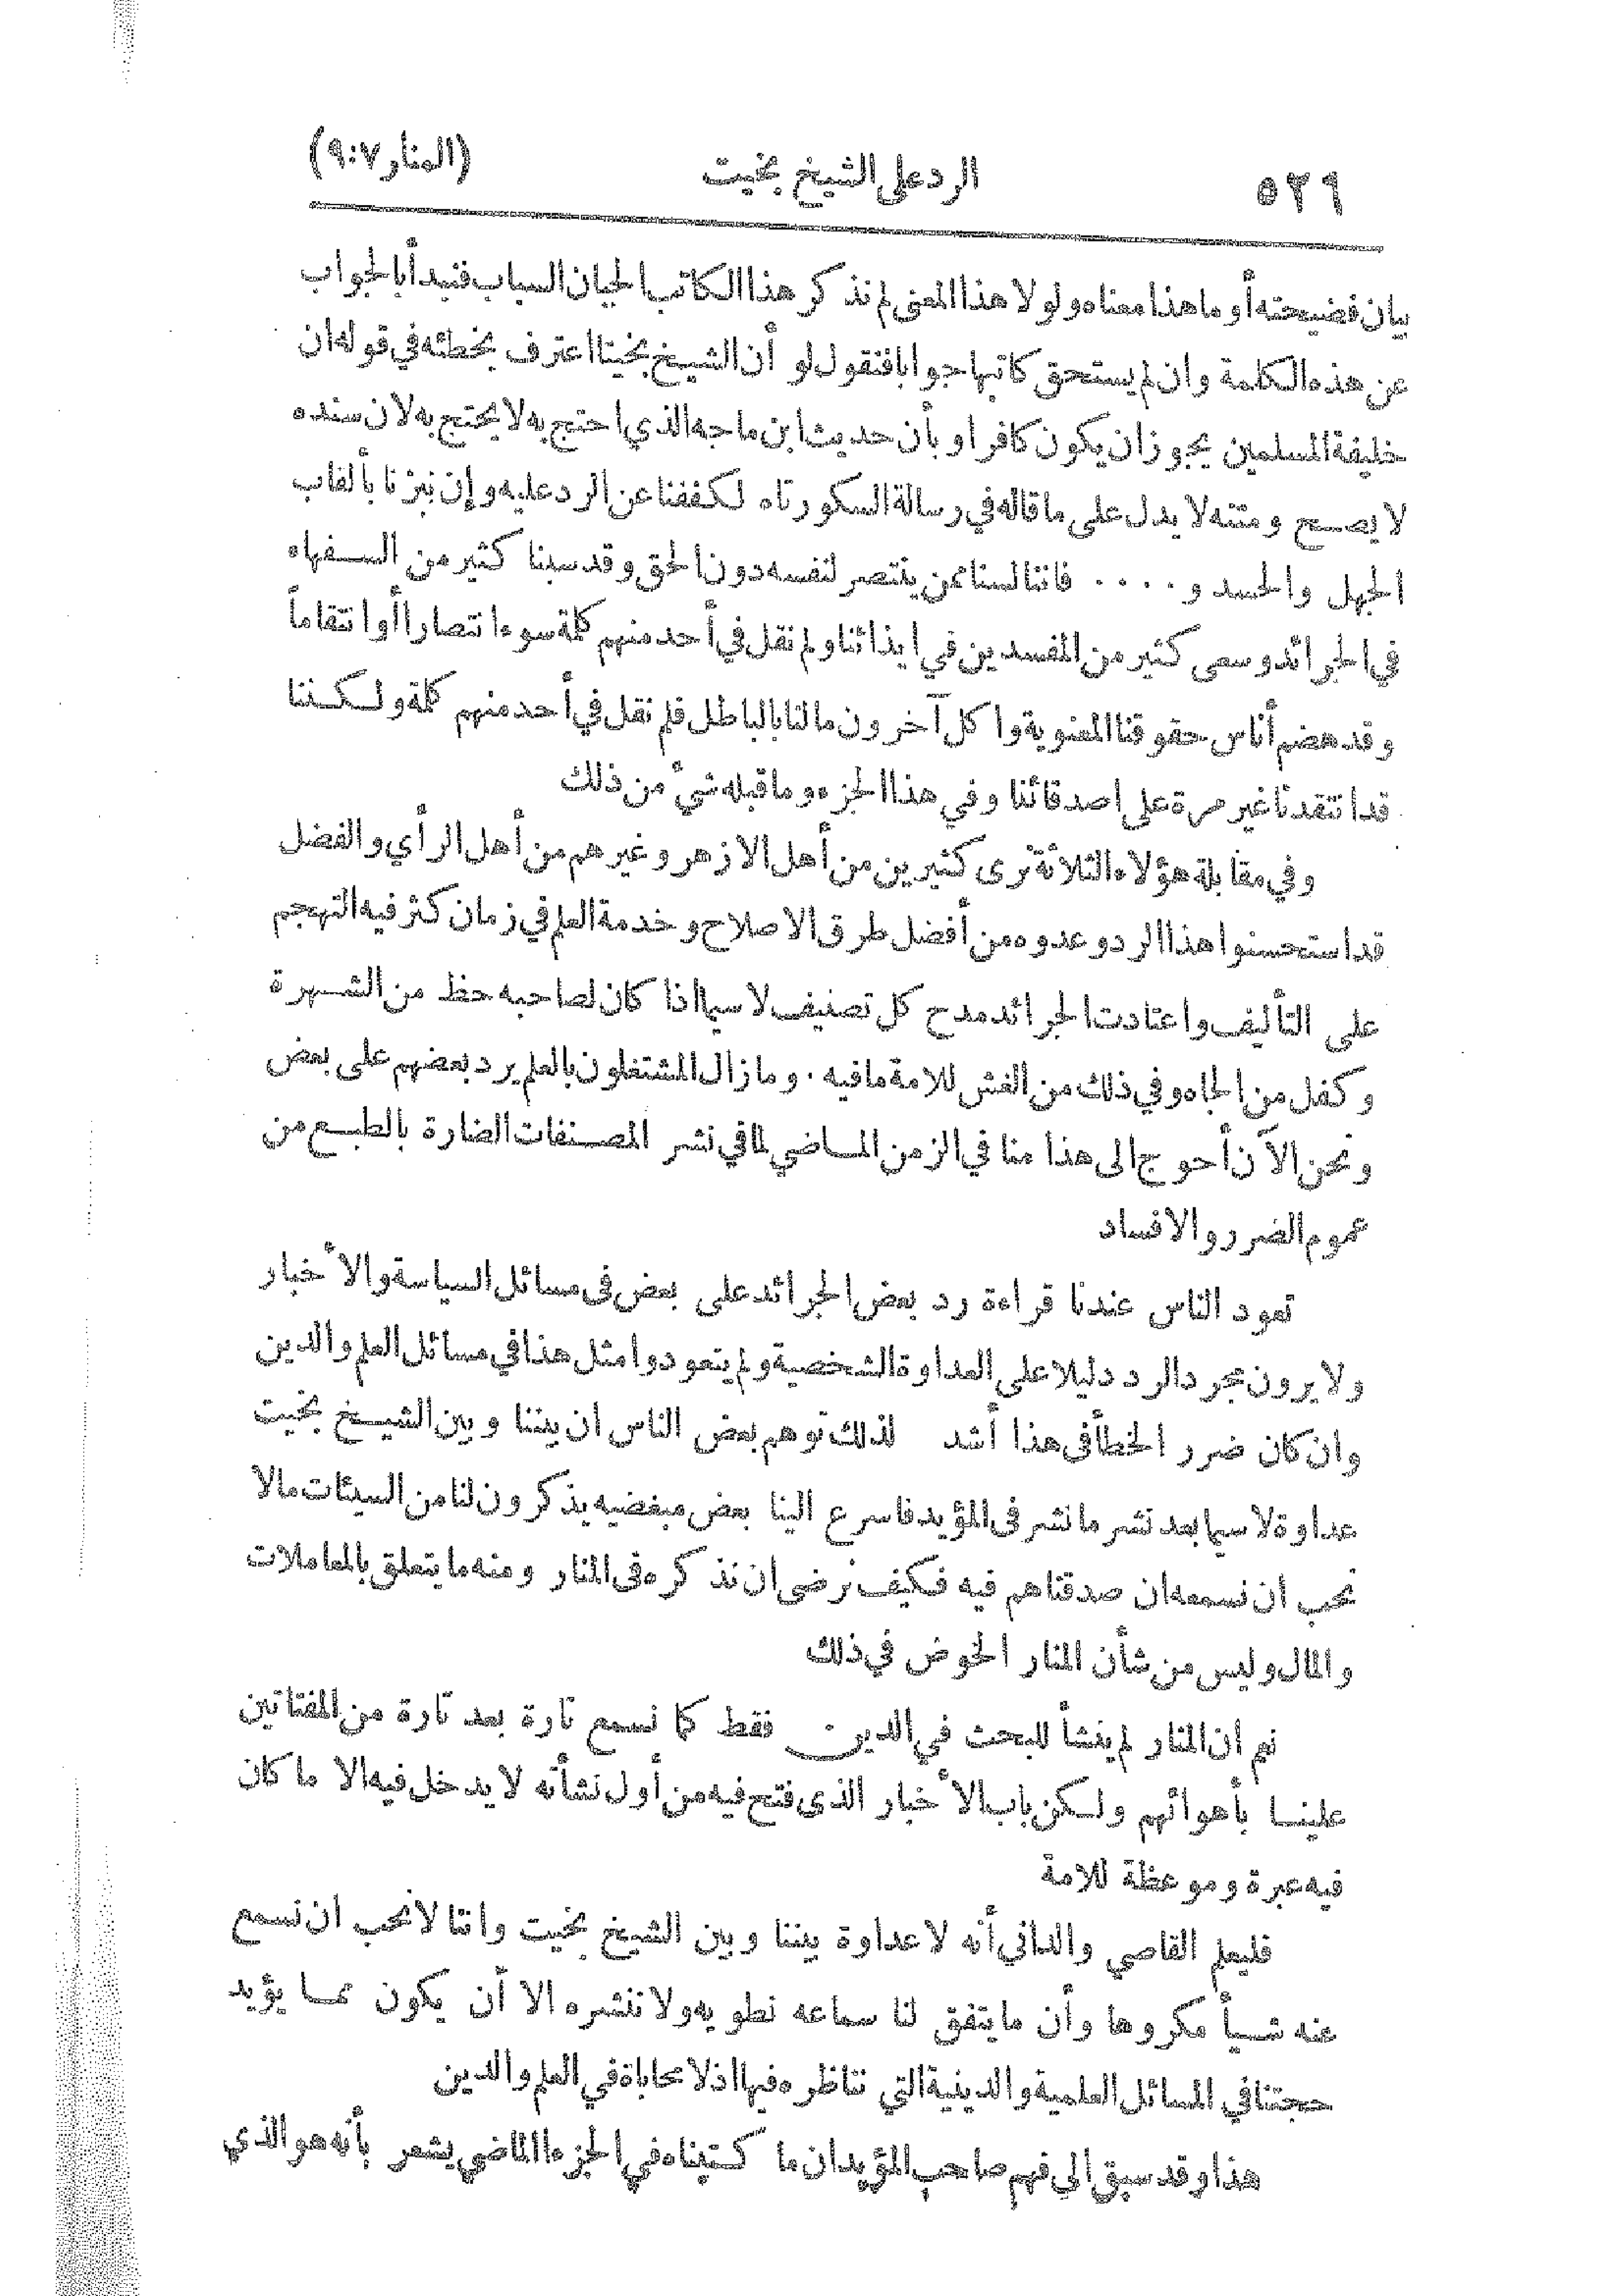 ٥٢٦ الرد على الشيخ بخيت (المنار ٩:٧)
بيان فضيحته أو ما هذا معناه ولولا هذا المعنى لم نذكر هذا الكاتب الجبان السباب فنبدأ بالجواب
عن هذه الكلمة وان لم يستحق كاتبها جوابا فنقول لو أن الشيخ بخيتا اعترف بخطئه في قوله ان
خليفة المسلمين يجوز ان يكون كافرا وبأن حديث ابن ماجه الذي احتج به لا يحتج به لان سنده
لا يصح ومتنه لا يدل على ما قاله في رسالة السكورتاه لكففنا عن الرد عليه وإن نبزنا بألقاب
الجهل والحسد و . . . . فاننا لسنا ممن ينتصر لنفسه دون الحق وقد سبنا كثير من السفهاء
في الجرائد وسعى كثير من المفسدين في ايذائنا ولم نقل في أحد منهم كلمة سوء انتصارا أو انتقاماً
وقد هضم أناس حقوقنا المعنوية واكل آخرون مالنا بالباطل فلم نقل في أحد منهم كلمة ولكننا
قد انتقدنا غير مرة على اصدقائنا وفي هذا الجزء وما قبله شيء من ذلك
وفي مقابلة هؤلاء الثلاثة نرى كثيرين من أهل الازهر وغيرهم من أهل الرأي والفضل
قد استحسنوا هذا الرد وعدوه من أفضل طرق الاصلاح وخدمة العلم في زمان كثر فيه التهجم
على التأليف واعتادت الجرائد مدح كل تصنيف لا سيما اذا كان لصاحبه حظ من الشهرة
وكفل من الجاه وفي ذلك من الغش للامة ما فيه . وما زال المشتغلون بالعلم يرد بعضهم على بعض
ونحن الآن أحوج الى هذا منا في الزمن الماضي لما في نشر المصنفات الضارة بالطبع من
عموم الضرر والافساد
تعود الناس عندنا قراءة رد بعض الجرائد على بعض فى مسائل السياسة والأخبار
ولا يرون مجرد الرد دليلا على العداوة الشخصية ولم يتعودوا مثل هذا في مسائل العلم والدين
وان كان ضرر الخطأ فى هذا أشد لذلك توهم بعض الناس ان بيننا وبين الشيخ بخيت
عداوة لا سيما بعد نشر ما نشر فى المؤيد فاسرع الينا بعض مبغضيه يذكرون لنا من السيئات مالا
نحب ان نسمعه ان صدقناهم فيه فكيف نرضى ان نذكره فى المنار ومنه ما يتعلق بالمعاملات
والمال وليس من شأن المنار الخوض في ذلك
نعم ان المنار لم ينشأ للبحث في الدين فقط كما نسمع تارة بعد تارة من المفتاتين
علينا بأهوائهم ولكن باب الأخبار الذى فتح فيه من أول نشأته لا يدخل فيه الا ما كان
فيه عبرة وموعظة للامة
فليعلم القاصي والداني أنه لا عداوة بيننا وبين الشيخ بخيت واننا لا نحب ان نسمع
عنه شيأ مكروها وأن ما يتفق لنا سماعه نطويه ولا ننشره الا أن يكون مما يؤيد
حجتنا في المسائل العلمية والدينية التي نناظره فيها اذ لا محاباة في العلم والدين
هذا وقد سبق الى فهم صاحب المؤيد ان ما كتبناه في الجزء الماضي يشعر بأنه هو الذي